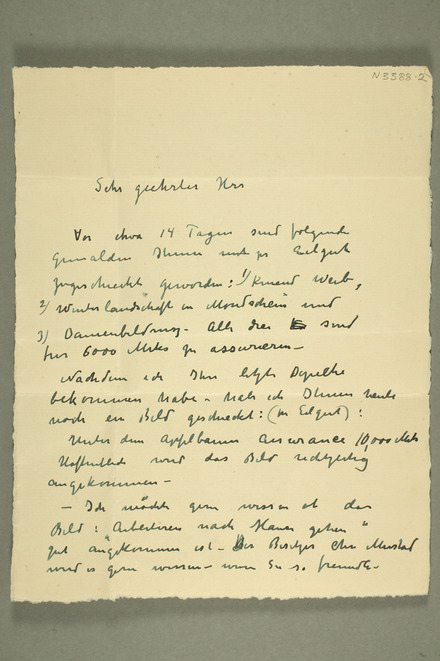 N 3388-2
Sehr geehrter Herr
Vor etwa 14 Tagen sind folgende
Gemälden Ihnen mit Eilgut
geschickt geworden: 1) Knieend Weib,
2) Winterlandschaft in Mondschein und
3) Damenbildniss - Alle drei sind
für 6000 Marks zu assurieren -
Nachdem ich Ihre letzte Depeche
bekommen habe - habe ich Ihnen heute
noch ein Bild geschickt: (in Eilgut):
Unter dem Apfelbaum Assurance 10,000 Mark
Hoffentlich wird das Bild rechtzeitig
angekommen -
- Ich möchte gern wissen ob das
Bild: "Arbeitern nach Hause gehen"
gut angekommen ist - Der Besitzer Chr Mustad
wird es gern wissen - wenn Sie so freundlic-